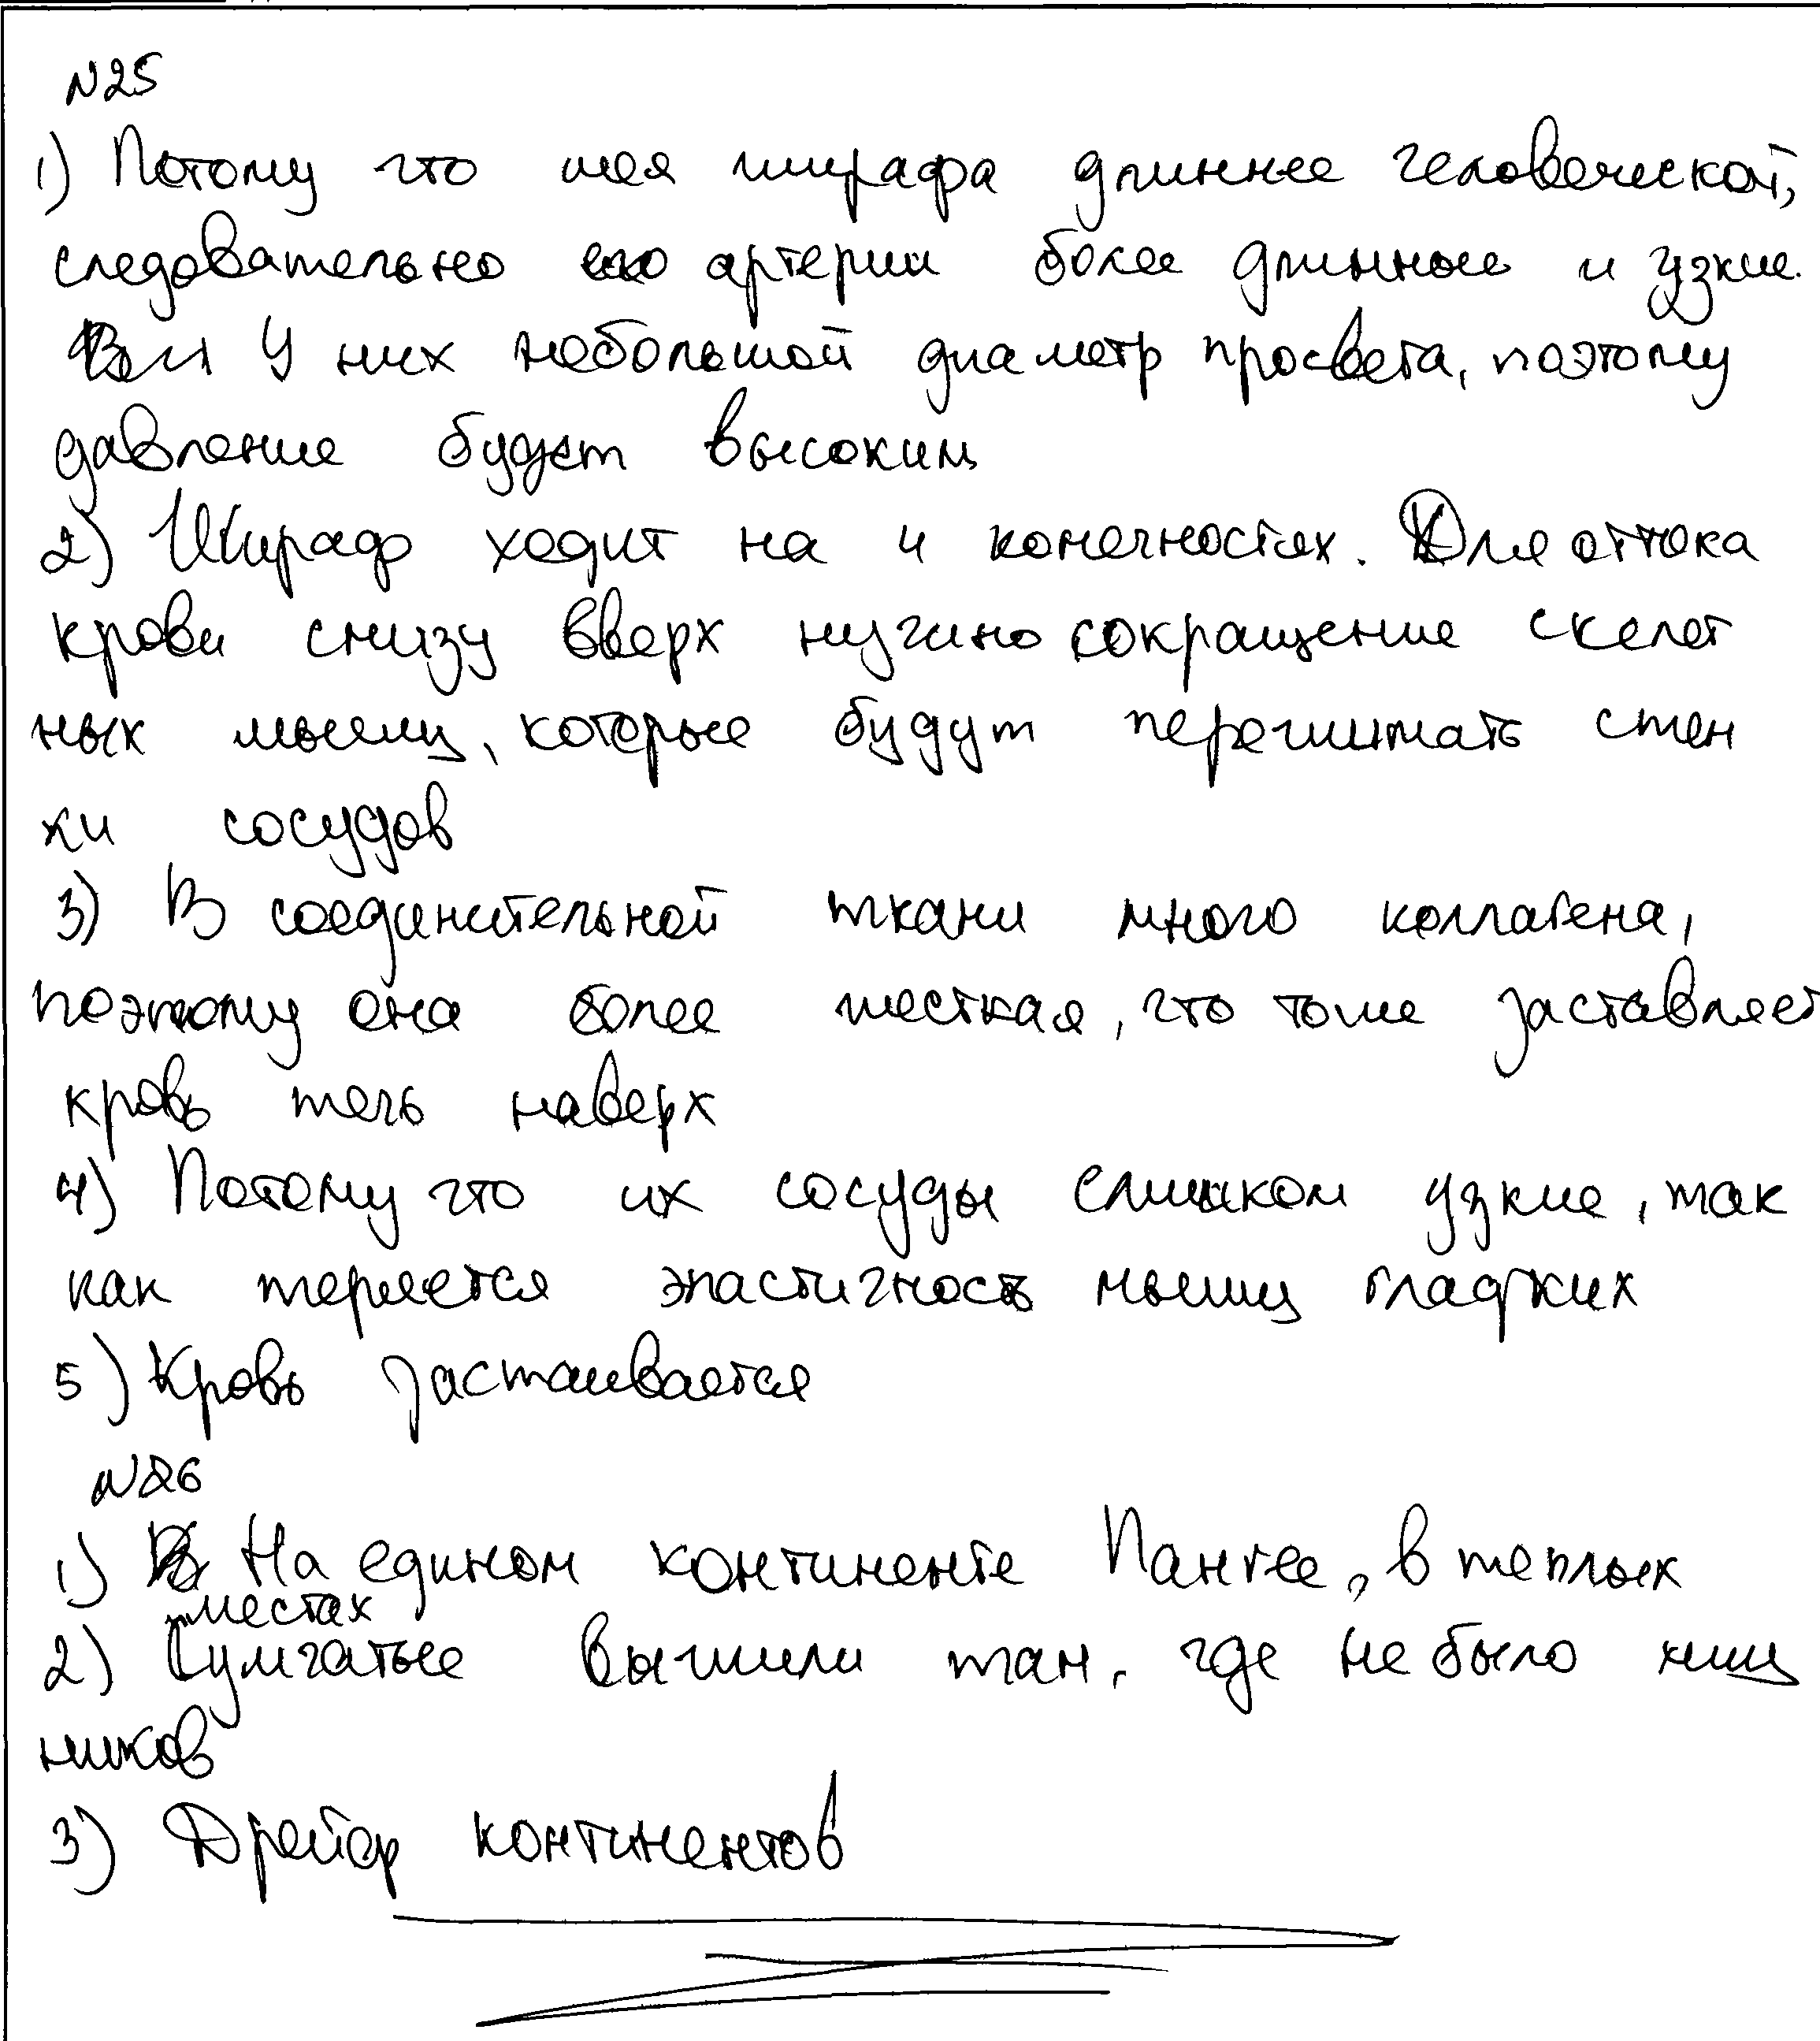 N25
1) Потому что шея жирафа длиннее человеческой,
следовательно его артерии более длинные и узкие.
У них небольшой диаметр просвета, поэтому
давление будет высоким
2) Жираф ходит на 4 конечностях. Для оттока
крови снизу вверх нужно сокращение скелет
ных мышц, которые будут пережимать стен
ки сосудов
3) В соединительной ткани много коллагена,
поэтому она более жесткая, что тоже заставляет
кровь течь наверх
4) Потому что их сосуды слишком узкие, так
как теряется эластичность мышц гладких
5) Кровь застаивается
N26
1) На едином континенте Пангее, в теплых
местах
2) Сумчатые выжили там, где не было хищ
ников
3) Дрейф континентов